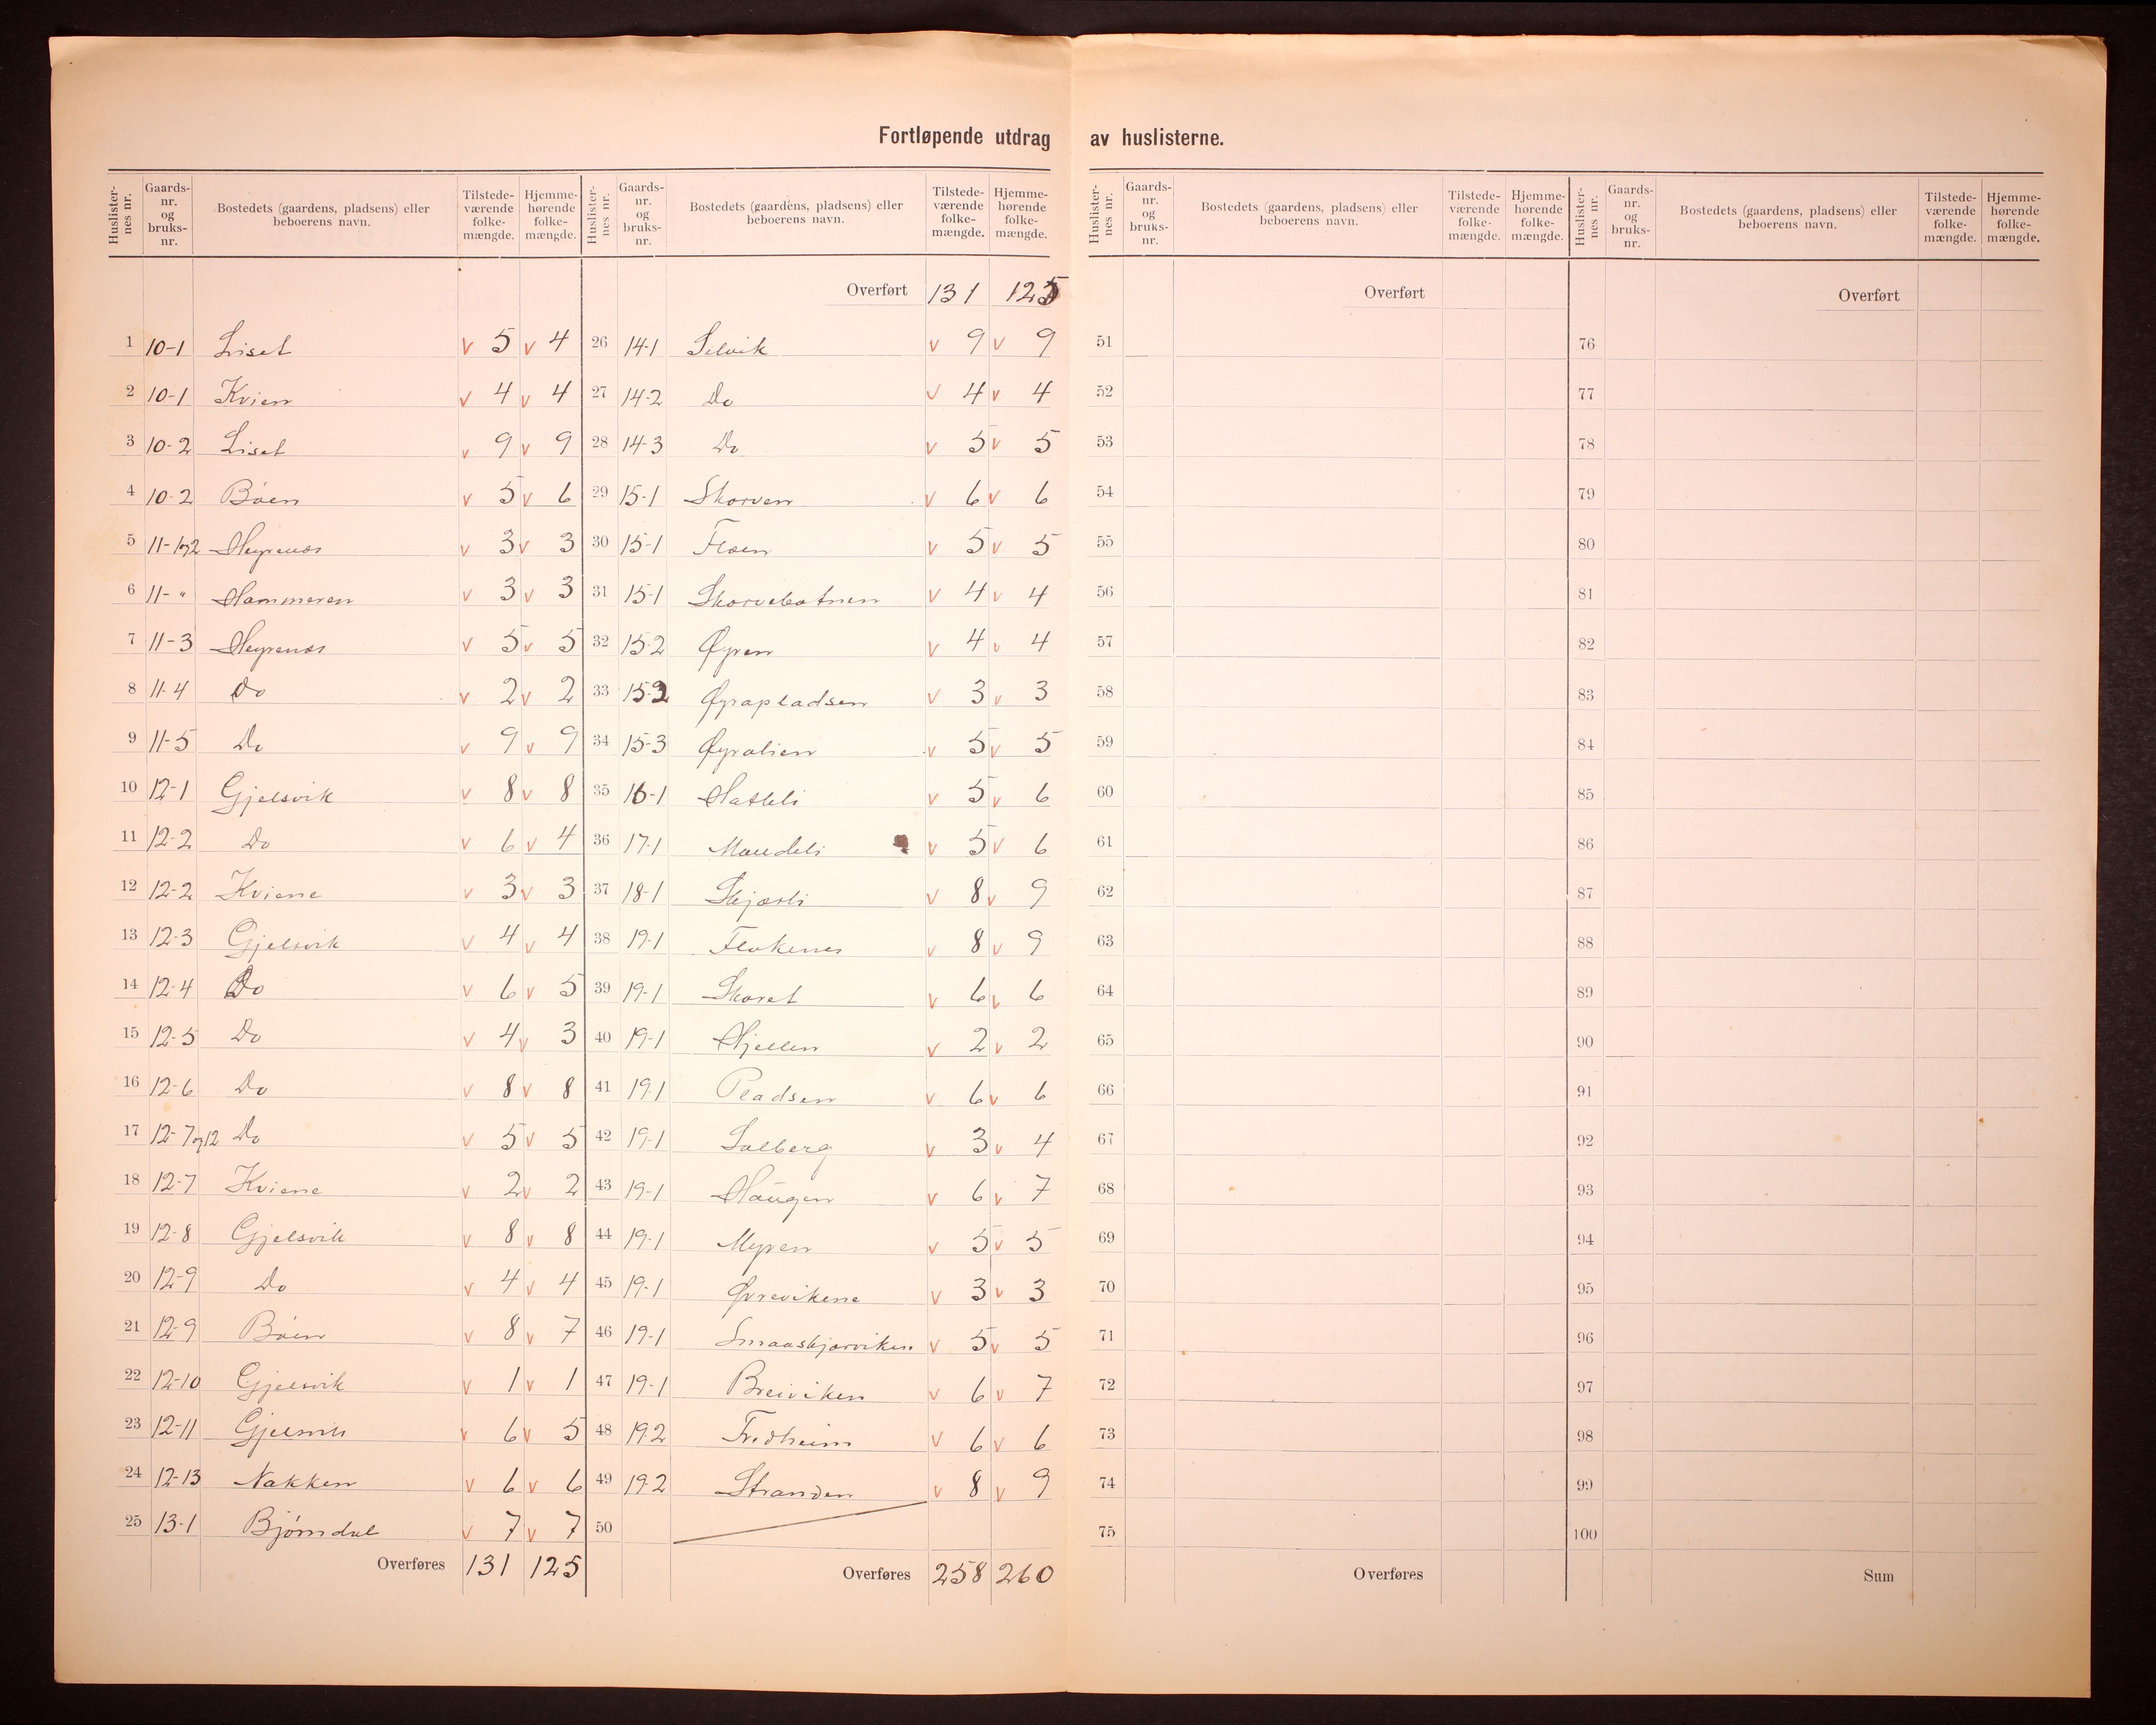 Fortløpende utdrag av huslisterne.
Huslister-nes nr. Gaards-nr. og bruks-nr. Bostedets (gaardens, pladsens) eller beboerens navn. Tilstede-værende folke-mængde. Hjemme-hørende folke-mængde.
1 10-1 Liset v 5 v 4
2 10-1 Kvien v 4 v 4
3 10-2 Liset v 9 v 9
4 10-2 Bøen v 5 v 6
5 11-1og2 Heyrenes v 3 v 3
6 11-" Hammeren v 3 v 3
7 11-3 Heyrenes v 5 v 5
8 11-4 Do v 2 v 2
9 11-5 Do v 9 v 9
10 12-1 Gjelsvik v 8 v 8
11 12-2 Do v 6 v 4
12 12-2 Kviene v 3 v 3
13 12-3 Gjelsvik v 4 v 4
14 12-4 Do v 6 v 5
15 12-5 Do v 4 v 3
16 12-6 Do v 8 v 8
17 12-7og12 Do v 5 v 5
18 12-7 Kviene v 2 v 2
19 12-8 Gjelsvik v 8 v 8
20 12-9 Do v 4 v 4
21 12-9 Bøen v 8 v 7
22 12-10 Gjelsvik v 1 v 1
23 12-11 Gjelsvik v 6 v 5
24 12-13 Nakken v 6 v 6
25 13-1 Bjørndal v 7 v 7
Overføres 131 125
Huslister-nes nr. Gaards-nr. og bruks-nr. Bostedets (gaardens, pladsens) eller beboerens navn. Tilstede-værende folke-mængde. Hjemme-hørende folke-mængde.
Overført 131 125
26 14-1 Selvik v 9 v 9
27 14-2 Do v 4 v 4
28 14-3 Do v 5 v 5
29 15-1 Skorven v 6 v 6
30 15-1 Floen v 5 v 5
31 15-1 Skorvebotnen v 4 v 4
32 15-2 Øyren v 4 v 4
33 15-2 Øyrapladsen v 3 v 3
34 15-3 Øyralien v 5 v 5
35 16-1 Hatleli v 5 v 6
36 17-1 Maudeli v 5 v 6
37 18-1 Skjærli v 8 v 9
38 19-1 Flokenes v 8 v 9
39 19-1 Skoret v 6 v 6
40 19-1 Hjellen v 2 v 2
41 19-1 Pladsen v 6 v 6
42 19-1 Solberg v 3 v 4
43 19-1 Haugen v 6 v 7
44 19-1 Myren v 5 v 5
45 19-1 Øvrevikene v 3 v 3
46 19-1 Smaaskjorviken v 5 v 5
47 19-1 Breiviken v 6 v 7
48 19-2 Fredheim v 6 v 6
49 19-2 Stranden v 8 v 9
50
Overføres 258 260
Huslister-nes nr. Gaards-nr. og bruks-nr. Bostedets (gaardens, pladsens) eller beboerens navn. Tilstede-værende folke-mængde. Hjemme-hørende folke-mængde.
Overført
51
52
53
54
55
56
57
58
59
60
61
62
63
64
65
66
67
68
69
70
71
72
73
74
75
Overføres
Huslister-nes nr. Gaards-nr. og bruks-nr. Bostedets (gaardens, pladsens) eller beboerens navn. Tilstede-værende folke-mængde. Hjemme-hørende folke-mængde.
Overført
76
77
78
79
80
81
82
83
84
85
86
87
88
89
90
91
92
93
94
95
96
97
98
99
100
Sum